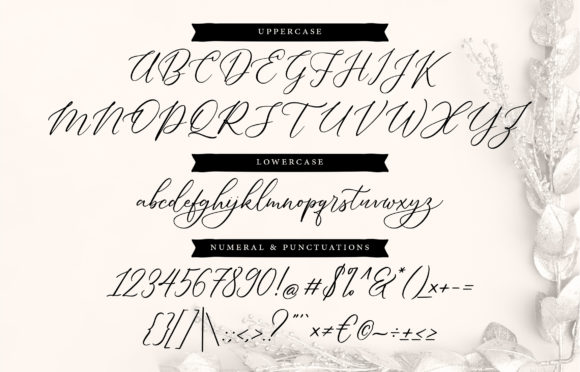 UPPERCASE
ABCDEGFHIJK
MNOPQRSTUVWXYZ
LOWERCASE
abcdefghijklmnopqrstuvwxyz
NUMERAL & PUNCTUATIONS
1234567890!@#$%^&*()_×+-=
{}[]|\:;<,>.?"'`×≠€©~÷±≤≥